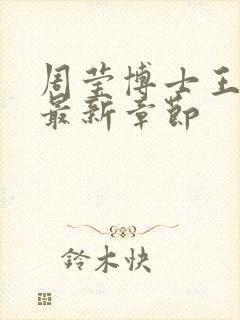 周莹博士王
最新章节
铃木快